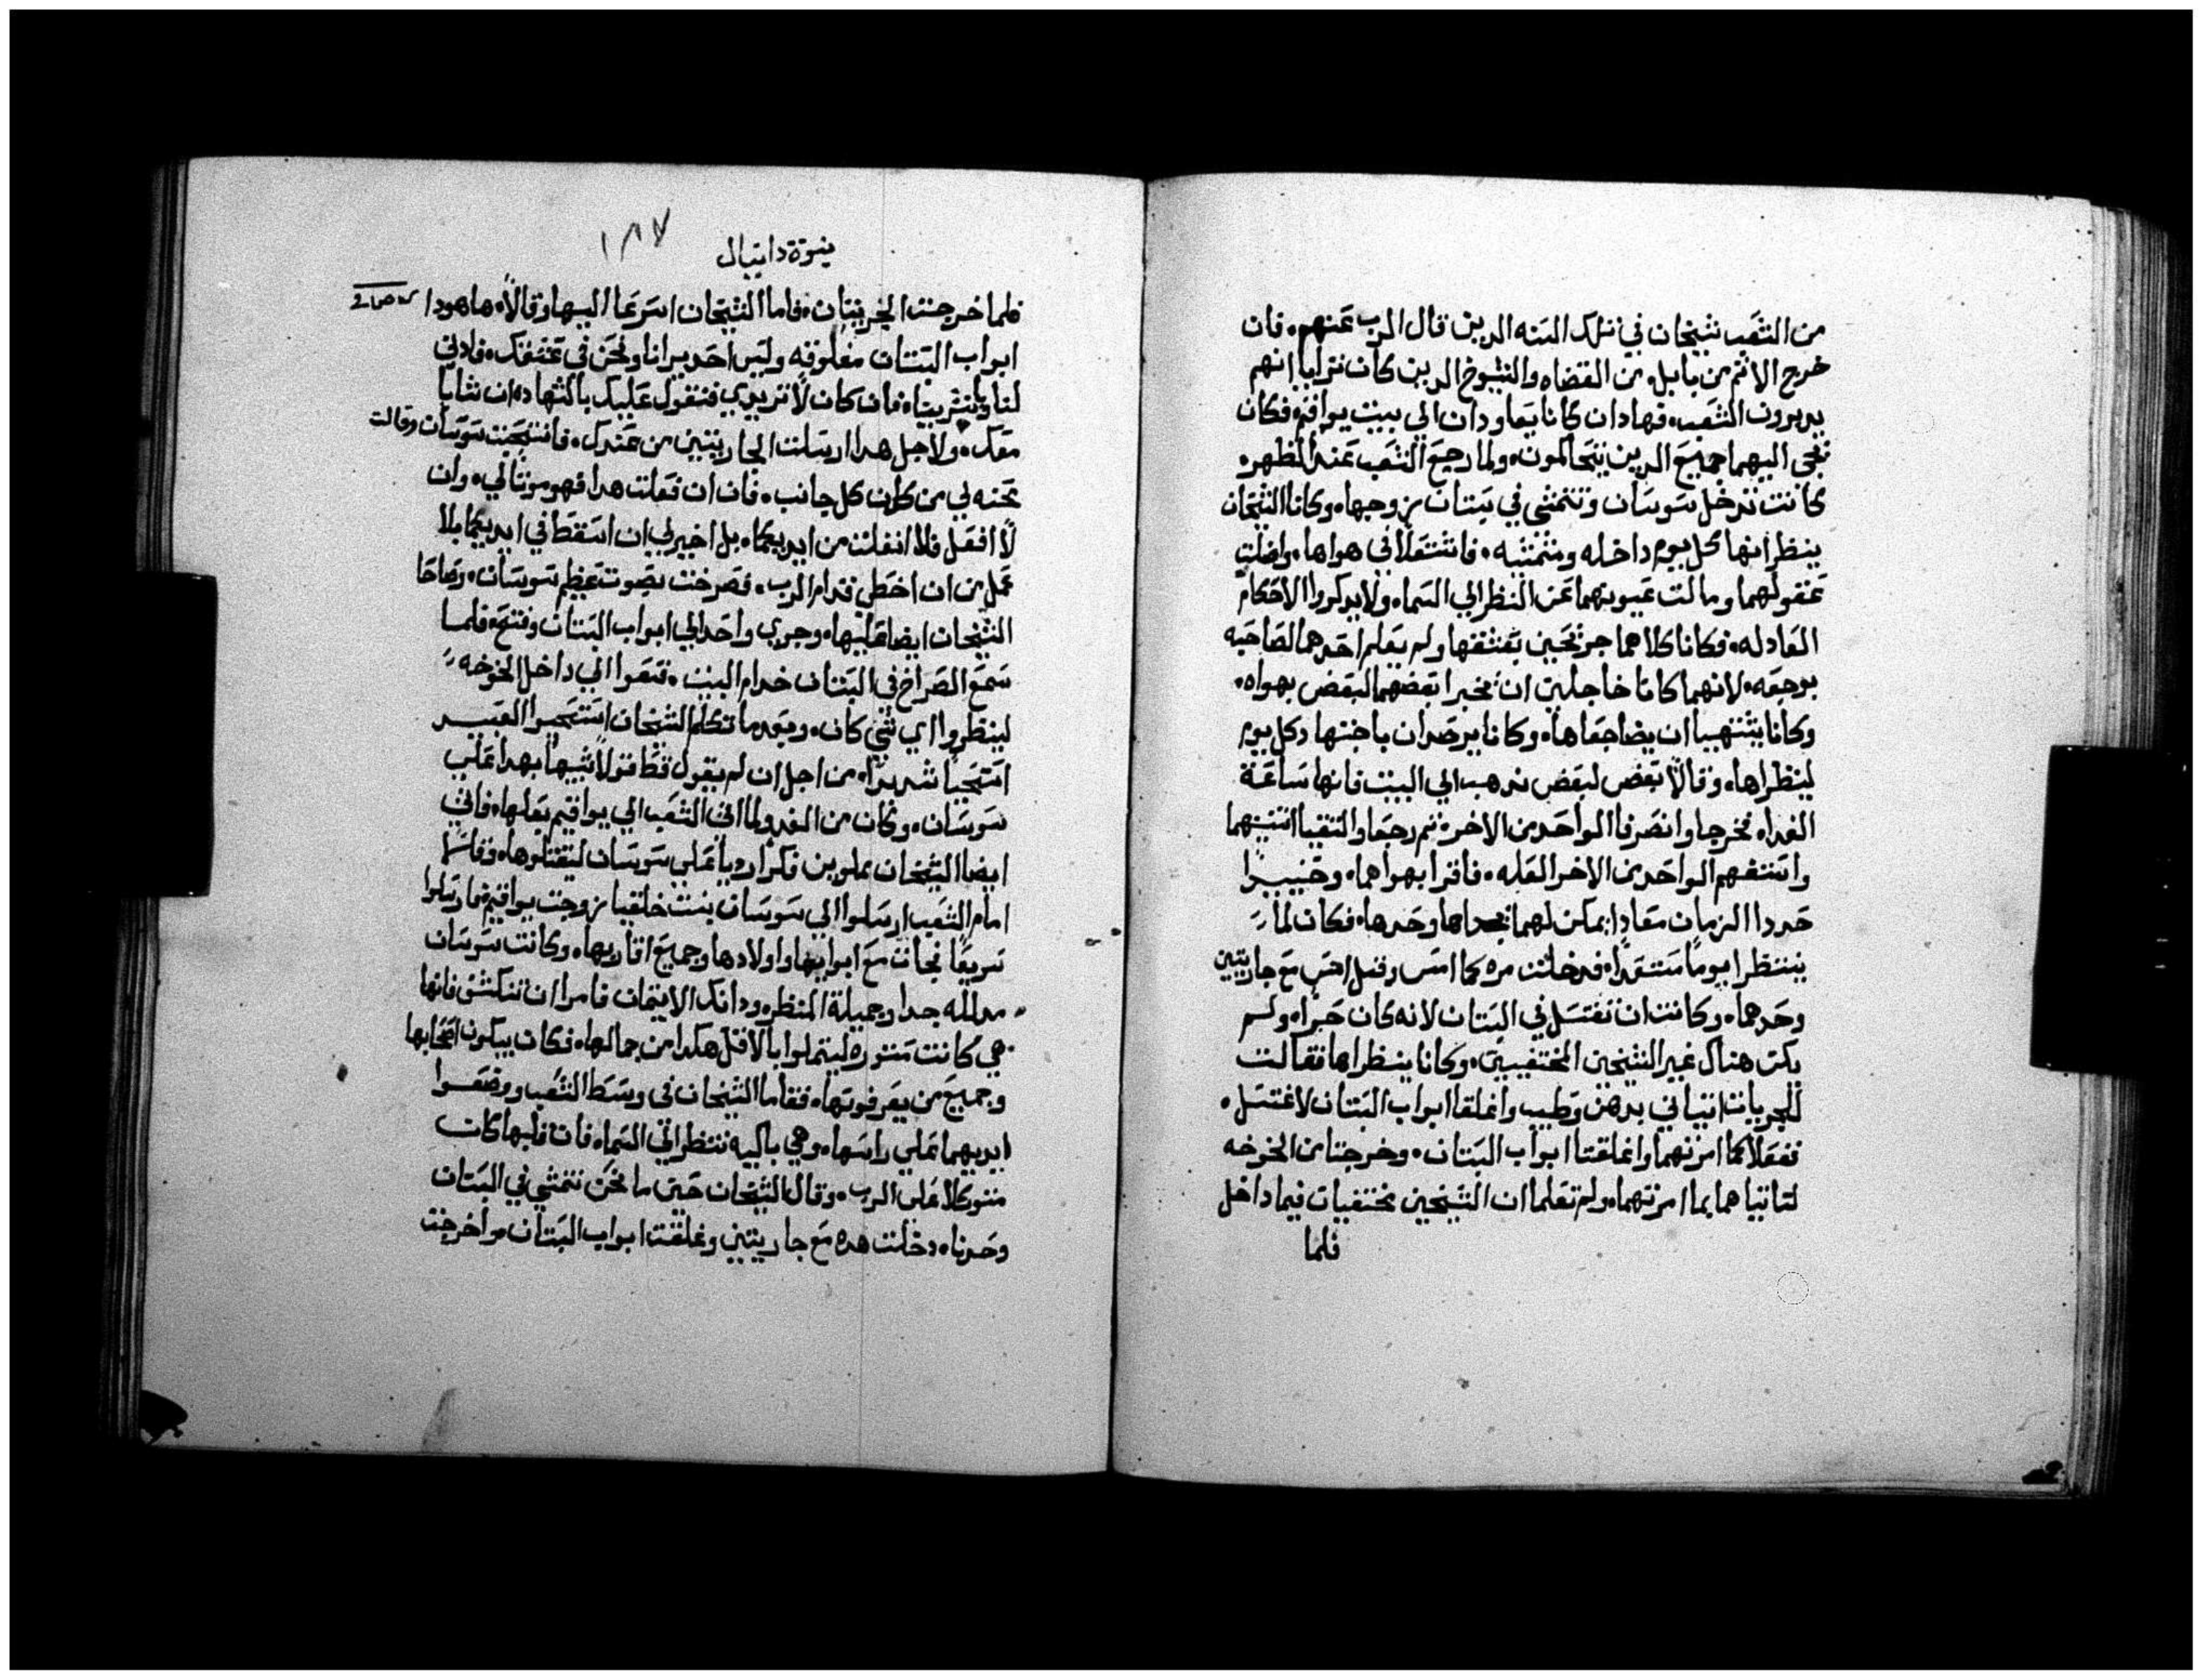 من الشعب شيخان في تلك السنه الدين قال الرب عنهم. فان
خرج الاثم من بابل. من القضاه والشيوخ الدين كان نرايا انهم
يدبرون الشعب. فهادان كانا يعاودان الي بيت يواقيم. فكان
تجي اليهما جميع الدين يتحاكمون. ولما رجع الشعب عند الظهر.
كانت تدخل سوسان وتتمشي في بستان زوجها. وكانا الشيخان
ينظرانها كل يوم داخله ومتمشيه. فاشتعلا في هواها. واضلت
عقولهما ومالت عيونهما عن النظر الي السماء ولا يدكروا الاحكام
العادله. فكانا كلاهما جريحين بعشقها ولم يعلم احدهما لصاحبه
بوجعه. لانهما كانا خاجلين ان يخبرا بعضهما لبعض بهواه.
وكانا يشتهيا ان يضاجعاها. وكانا يرصدان باجتهاد كل يوم
لينظراها. وقالا بعض لبعض ندهب الي البيت فانها ساعة
الغداء فخرجا وانصرفا الواحد من الاخر. ثم رجعا والتقيا اثنينهما
واستفهم الواحد من الاخر العله. فاقرا بهواهما. وحينيدا
حددا الزمان معادا يمكن لهما يجداها وحدها. فكان لما
ينتظرا يوما مستعدا. فدخلت مره كما امس وقبل امس مع جاريتين
وحدهما. وكانت ان تغتسل في البستان لانه كان حرا. ولم
يكن هناك غير الشيخين المختفيين. وكانا ينظراها فقالت
للجريات ايتياني بدهن وطيب واغلقا ابواب البستان لاغتسل.
ففعلا كما امرتهما واغلقتا ابواب البستان. وخرجتا من الخوخه
لتاتيا هما بما امرتهما. ولم تعلما ان الشيخين مختفيات فيما داخل
فلما
نبوة دانيال
١٨٧
فلما خرجت الجريتان. فاما الشيخان اسرعا اليها وقالا. ها هودا
ابواب البستان مغلوقه وليس احد يرانا ونحن في عشقك. فادني
لنا وباشرينا. فان كان لا تريدي فنقول عليك بالشهاده ان شابا
معك. ولاجل هدا ارسلت الجاريتين من عندك. فانتحبت سوسان وقالت
محنه لي من كل جانب. فان ان فعلت هدا فهو موتا لي. وان
لا افعل فلا انفلت من ايديكما. بل اخير لي ان اسقط في ايديكما بلا
عمل من ان اخطي قدام الرب. فصرخت بصوت عظيم سوسان. وصاحا
الشيخان ايضا عليها. وجري واحد الي ابواب البستان وفتح. فلما
سمع الصراخ في البستان خدام البيت. فتعوا الي داخل الخوخه
لينظروا اي شي كان. وبعد ما تكلم الشيخان استحيوا العبيد
استحيا شديدا. من اجل ان لم يقول قط قولا شبيها بهدا علي
سوسان. وكان من الغد ولما اتي الشعب الي يواقيم بعلها. فاتي
ايضا الشيخان مملوين فكرا رديا علي سوسان ليقتلوها. وقالا
امام الشعب ارسلوا الي سوسان بنت خلقيا زوجت يواقيم فارسلوا
سريعا فجات مع ابواها واولادها وجميع اقاربها. وكانت سوسان
مدلله جدا وجميلة المنظر. ودانك الايثمان فامرا ان تنكشف فانها
هي كانت مستوره ليتملوا بالاقل هكدا من جمالها. فكان يبكون اصحابها
وجميع من يعرفونها. فقاما الشيخان في وسط الشعب ووضعوا
ايديهما علي راسها. وهي باكيه تنتظر الي السماء فان قلبها كان
متوكلا علي الرب. وقال الشيخان حين ما نحن نتمشي في البستان
وحدنا. دخلت هده مع جاريتين وغلقت ابواب البستان واخرجت